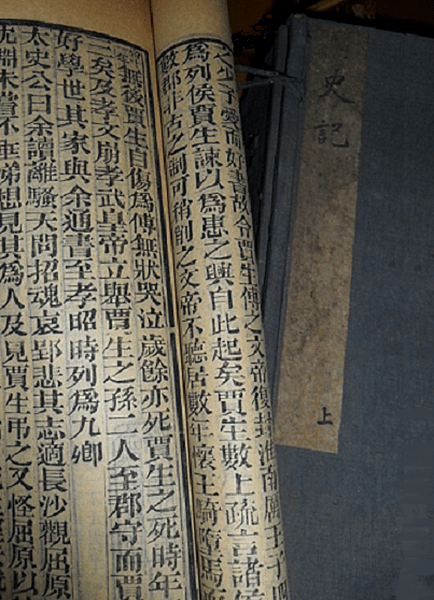 史記
上
之少子愛而好書故令賈生傅之文帝復封淮南厲王子四
爲列侯賈生諫以爲患之興自此起矣賈生數上疏言諸侯
數郡非古之制可稍削之文帝不聽居數年懷王騎墮馬
無後賈生自傷爲傅無狀哭泣歲餘亦死賈生之死時年
三矣及孝文崩孝武皇帝立舉賈生之孫二人至郡守而賈
好學世其家與余通書至孝昭時列爲九卿
太史公曰余讀離騷天問招魂哀郢悲其志適長沙觀屈原
沈淵未嘗不垂涕想見其爲人及見賈生弔之又怪屈原以